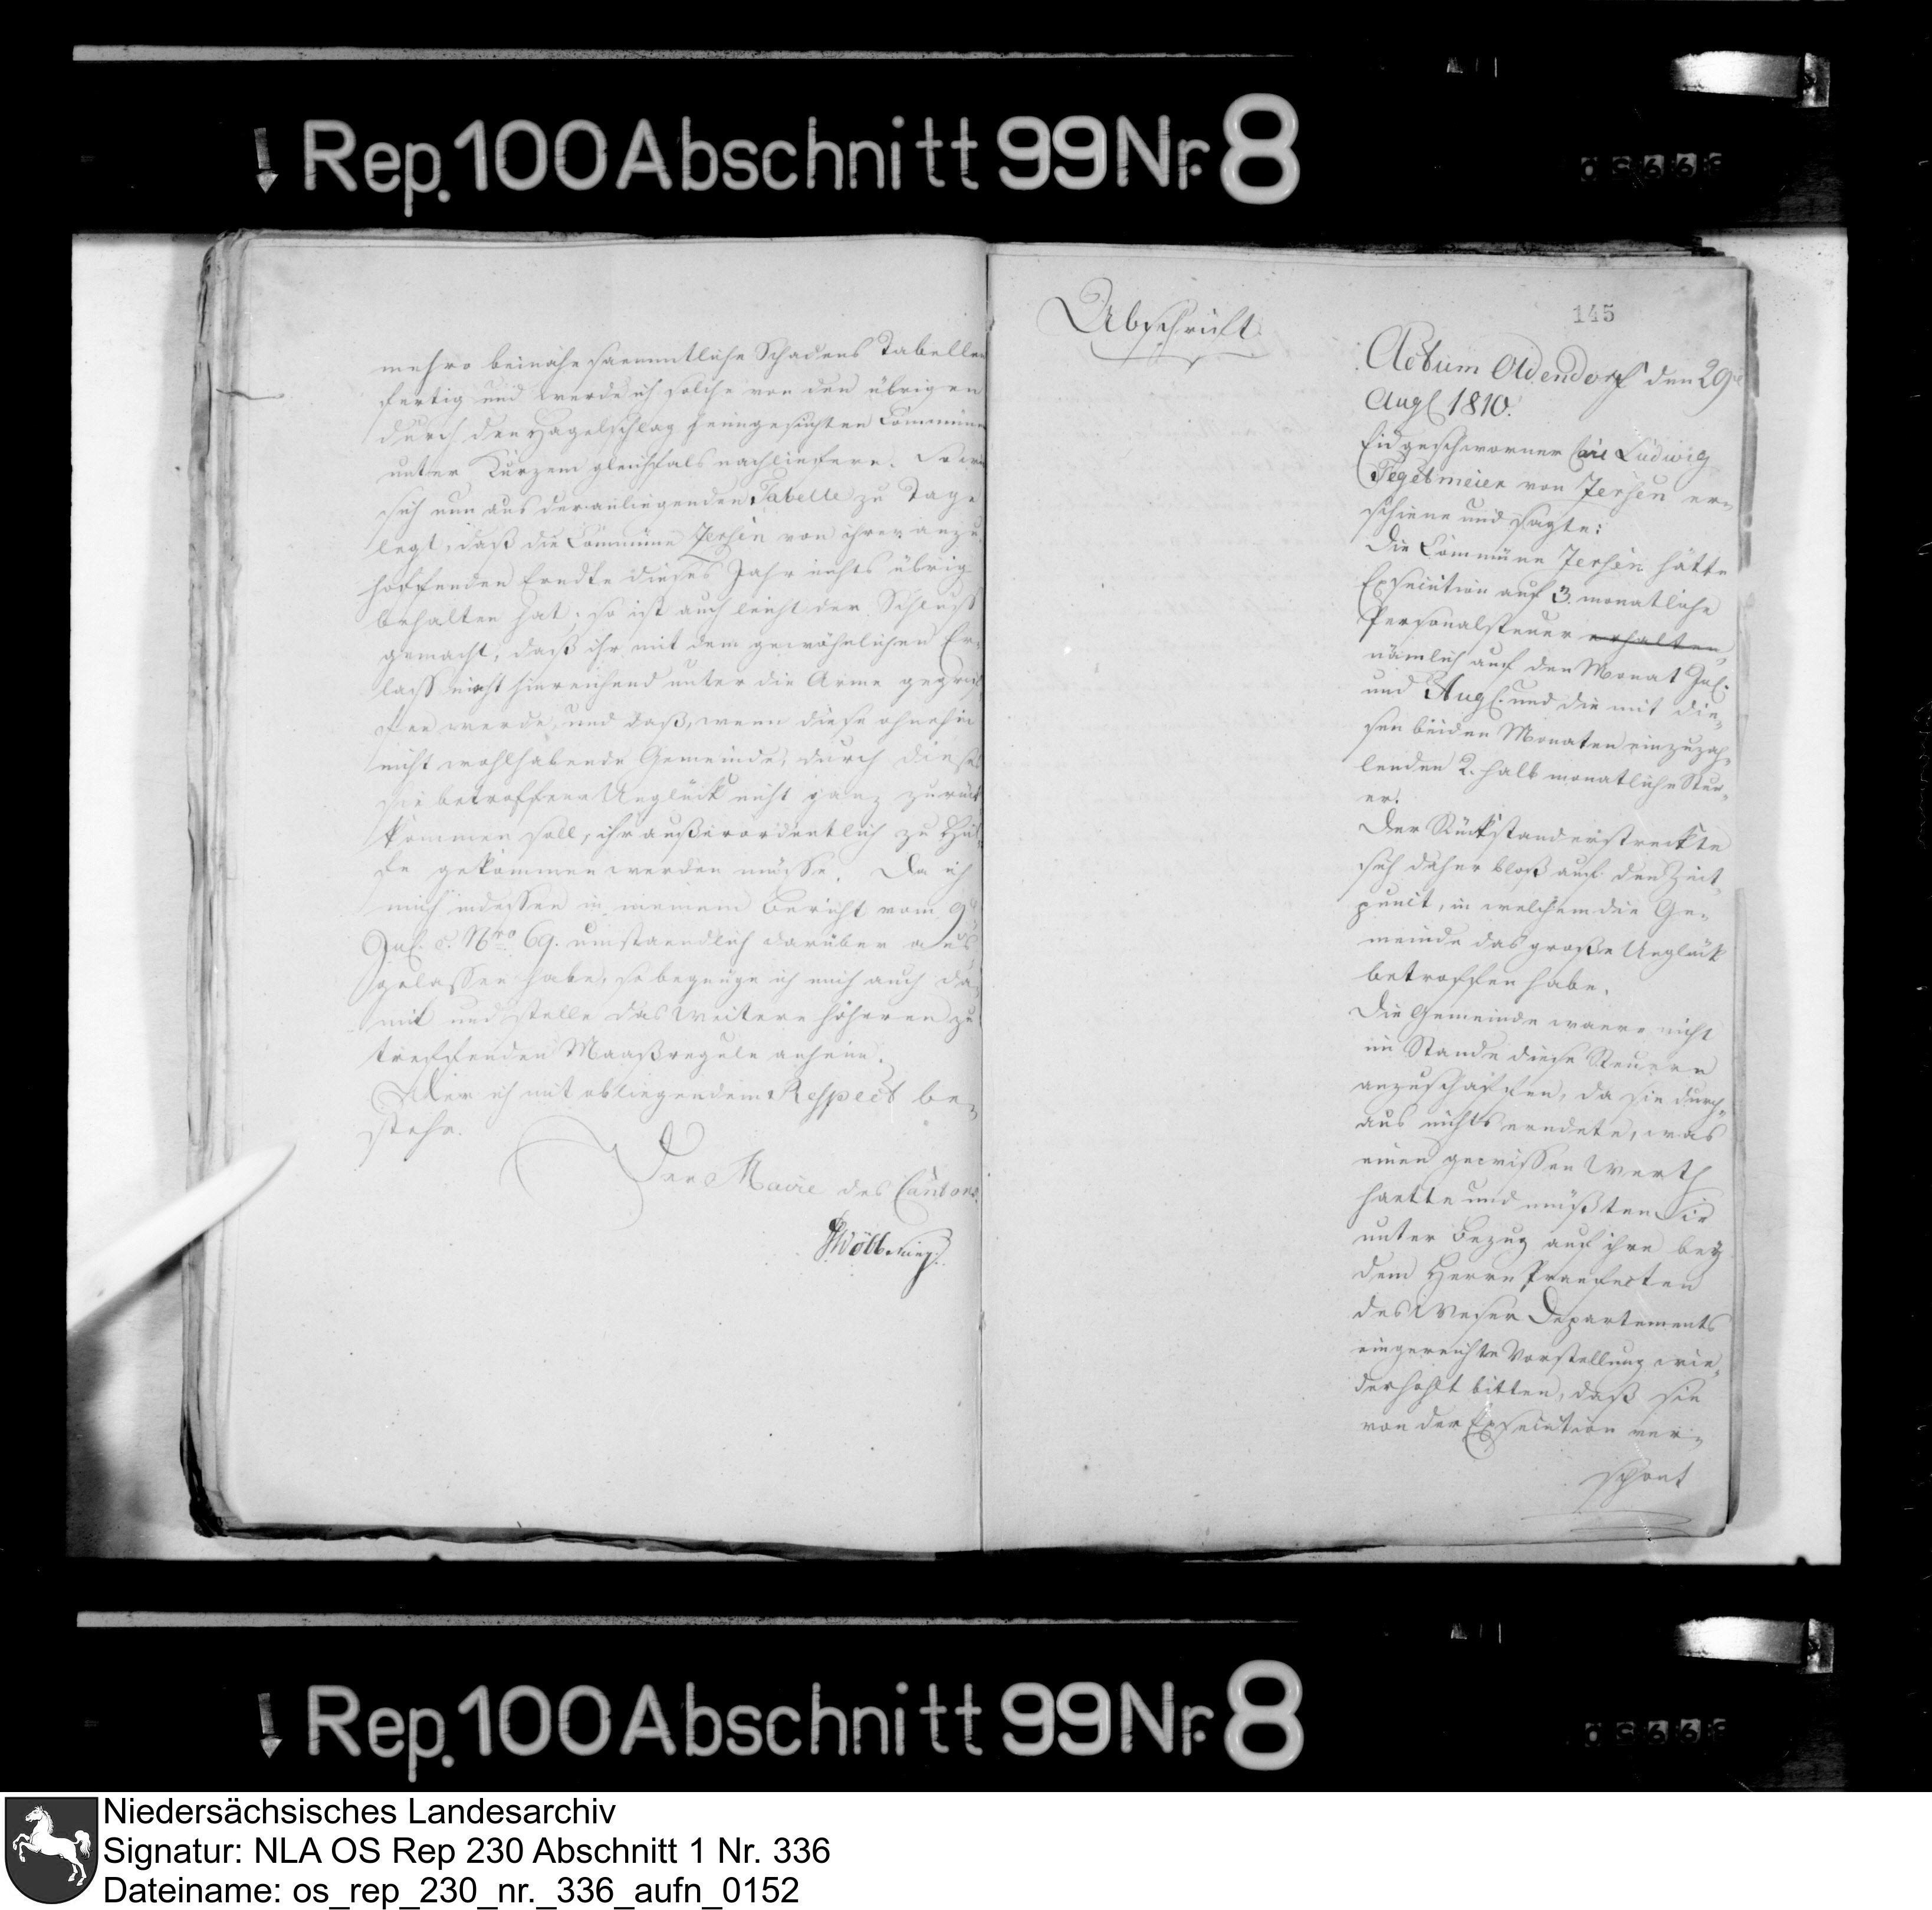 ↓ Rep. 100 Abschnitt 99 Nr. 8
mehro beinahe saemmtliche Schadens Tabellen
fertig und werde ich solche von den übrigen
durch den Hagelschlag heimgesuchten Commünen
unter Kurzem gleichfals nachliefern. So wie
sich nun aus der anliegenden Tabelle zu Tage
legt, daß die Commüne Zersen von ihrer anzu
hoffenden Erndte dieses Jahr nichts übrig
behalten hat, so ist auch leicht der Schluß
gemacht, daß ihr mit dem gewöhnlichen Er-
laß nicht hinreichend unter die Arme gegrif
fen werde, und daß, wenn diese ohnehin
nicht wohlhabende Gemeinde, durch dieses
sie betroffene Unglück nicht ganz zurück
kommen soll, ihr außerordentlich zu Hül-
fe gekommen werden müsse. Da ich
mich indessen in meinem Bericht vom 9t
Jul. c. Nro 69. umstaendlich darüber aus
gelassen habe, so begnüge ich mich auch da-
mit und stelle das Weitere höheren zu
treffenden Maaßregeln anheim.
Der ich mit obliegendem Respect be-
stehe.
Der Maire des Cantons
Abschrift
145
Actum Oldendorf den 29t
Augl 1810.
Eidgeschworner Carl Ludwig
Tegetmeier von Zersen er-
schiene und sagte:
Die Commüne Zersen hätte
Execution auf 3. monatliche
Personalsteuer erhalten,
nämlich auf den Monat Jul.
und Augl. und die mit die-
sen beiden Monaten einzuzah-
lenden 2. halb monatliche Steu-
er.
Der Rückstand erstreckte
sich daher bloß auf den Zeit-
punct, in welchem die Ge-
meinde das große Unglück
betroffen habe.
Die Gemeinde waere nicht
im Stande diese Steuern
anzuschaffen, da sie durch-
aus nichts erndete, was
einen gewissen Werth
haette und müßten sie
unter Bezug auf ihre bey
dem Herrn Praefecten
des Weser Departements
eingereichte Vorstellung wie-
derhohlt bitten, daß sie
von der Execution ver-
schont
↓ Rep. 100 Abschnitt 99 Nr. 8
Niedersächsisches Landesarchiv
Signatur: NLA OS Rep 230 Abschnitt 1 Nr. 336
Dateiname: os_rep_230_nr._336_aufn_0152